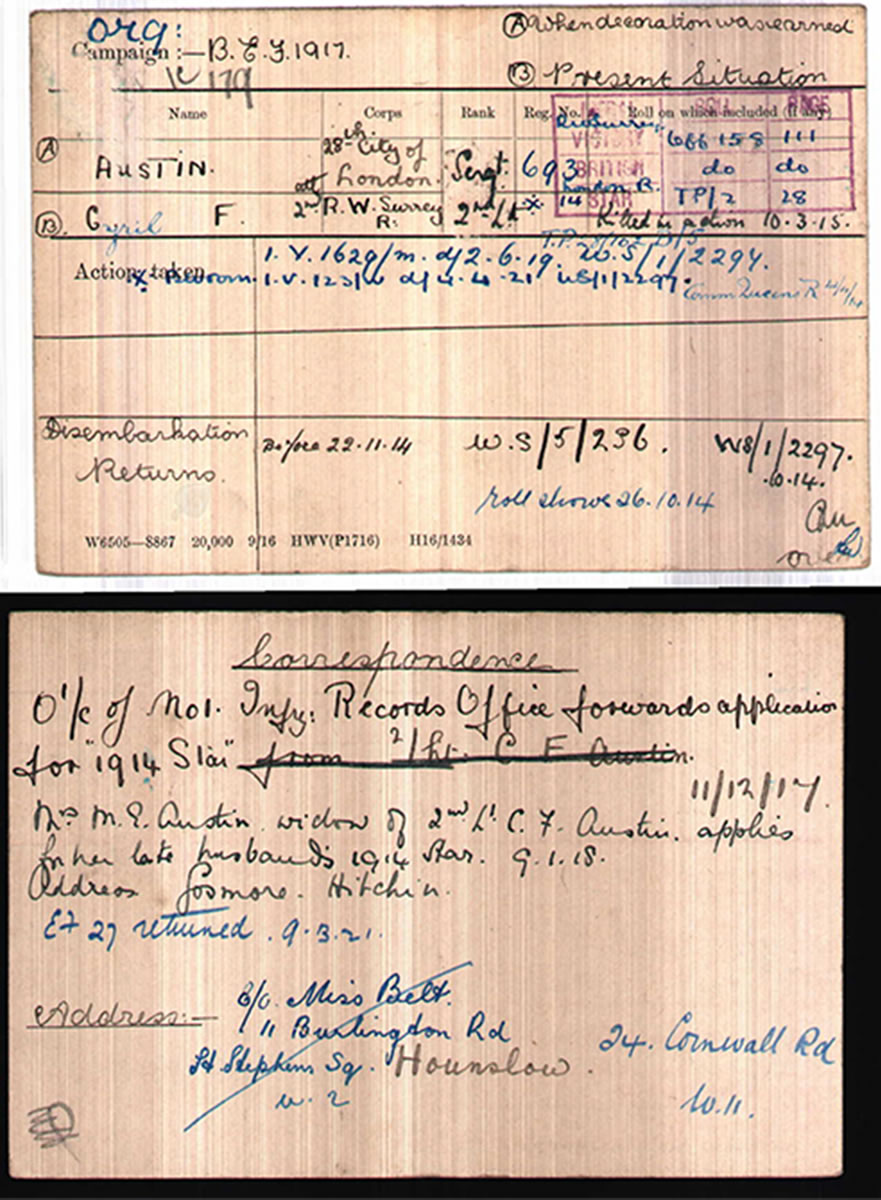 Org:
Campaign :— B.E.F. 1917.
(A) When decoration was earned
179
(B) Present Situation
Name Corps Rank Reg. No. Roll on which included (if any)
ROLL PAGE
VICTORY Off 158 111
(A) AUSTIN. 28th City of London. Sergt. 693
BRITISH do do
London R.
14 STAR TP/2 28
(B) Cyril F. 2nd R. W. Surrey R. 2nd Lt * Killed in action 10-3-15.
Action taken
1. V. 1629/m. d/2-6-19. W.S/1/2297.
1. V. 123/W d/4-4-21 WS/1/2297.
Comm Queens R
Disembarkation Returns.
Before 22-11-14 W.S/5/236. WS/1/2297.
.10.14.
roll shows 26.10.14
over
W6505—S867 20,000 9/16 HWV(P1716) H16/1434
Correspondence
O i/c of No1. Infy: Records Office forwards application
for "1914 Star" from 2/Lt. C F Austin.
11/12/17.
Mrs M. E. Austin widow of 2nd Lt. C. F. Austin. applies
for her late husband's 1914 Star. 9.1.18.
Address Gosmore. Hitchin.
EF 27 returned. 9.3.21.
Address:—
C/o. Miss Belt.
11 Burlington Rd
St Stephens Sq. Hounslow.
W. 2
24. Cornwall Rd
W.11.